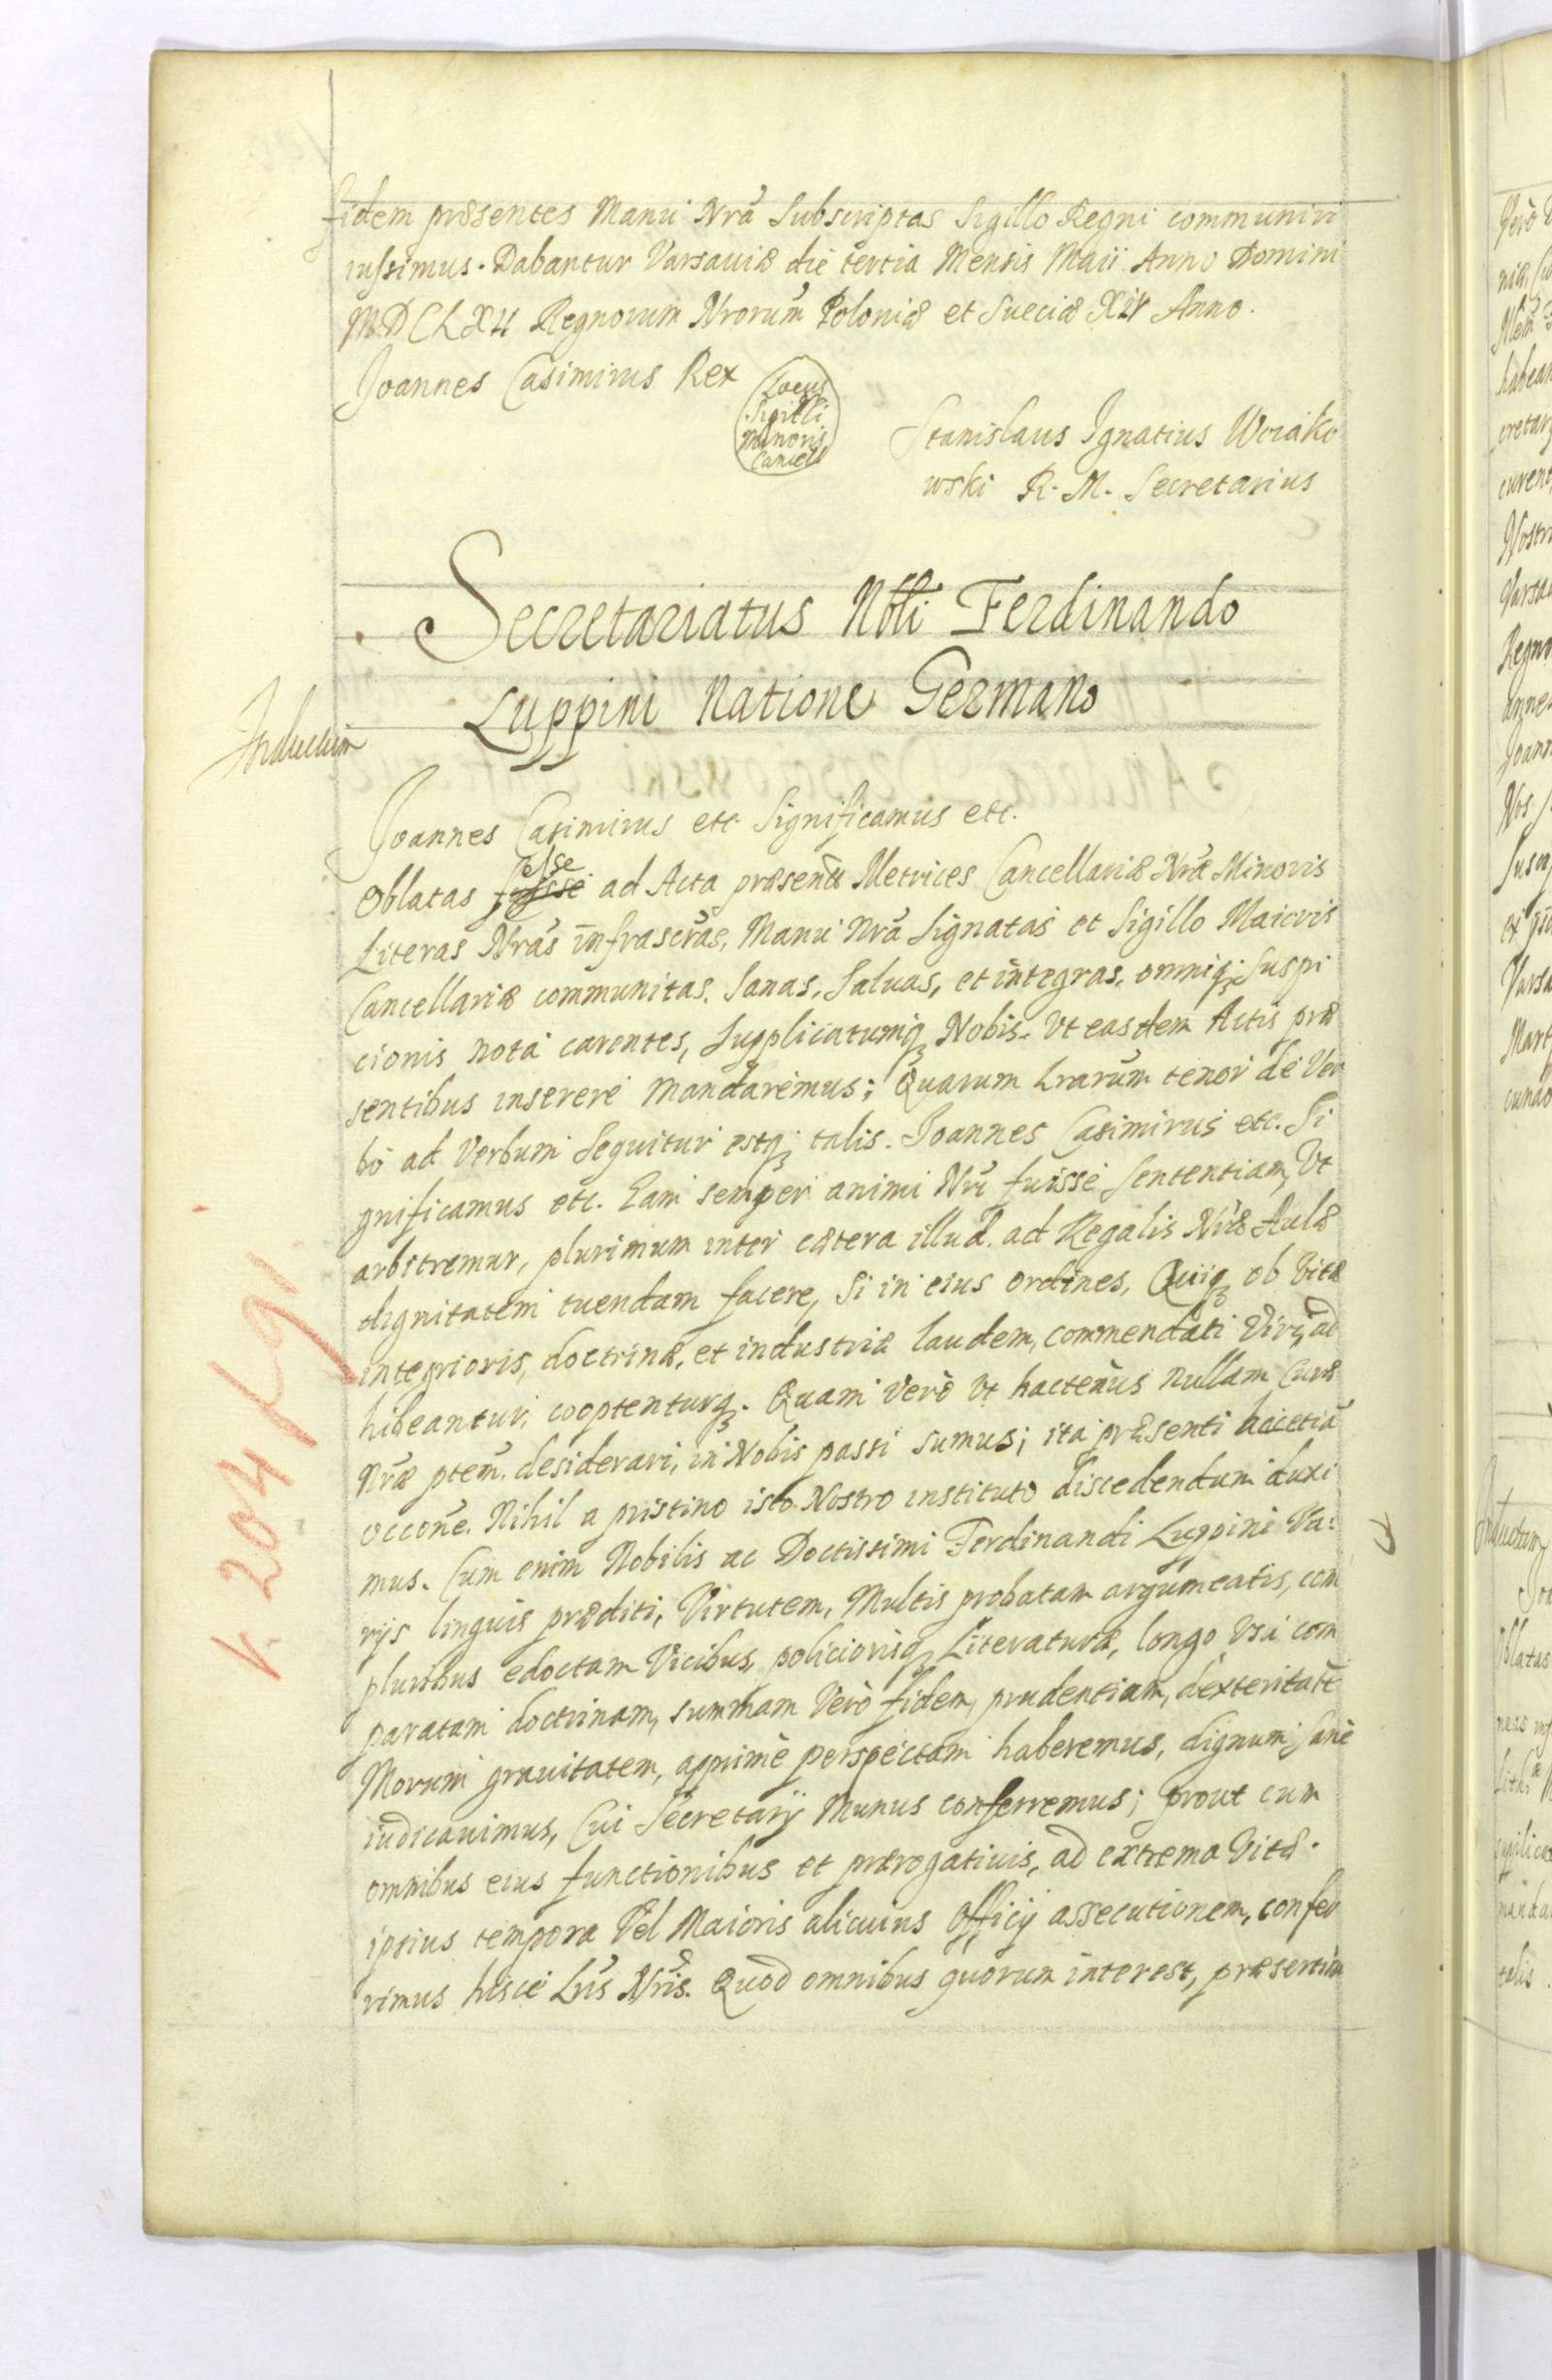 fidem præsentes Manu Nrã Subscriptas Sigillo Regni communiri
iussimus. Dabantur Varsauiæ die tertia Mensis Maii Anno Domini
MDCLXII Regnorum Nrorum Poloniæ et Sueciæ XIV Anno.
Joannes Casimirus Rex
Locus
Sigilli
Minoris
Cancell
Stanislaus Ignatius Woiako
wski R. M. Secretarius
Secretariatus Nbli Ferdinando
Luppini Natione Germano
Inductum
Joannes Casimirus etc. Significamus etc.
esse
Oblatas fuisse ad Acta præsentis Metrices Cancellariæ Nræ Minoris
Literas Nrãs infrascrãs, Manu Nrã Signatas et Sigillo Maioris
Cancellariæ communitas. Sanas, Saluas, et integras, omniq; Suspi
cionis nota carentes, Supplicatumq; Nobis. Vt easdem Actis præ
sentibus inserere Mandaremus; Quarum Lrarum tenor de Ver
bo ad Verbum Sequitur estq; talis. Joannes Casimirus etc. Si
gnificamus etc. Eam semper animi Nri fuisse Sententiam, Vt
arbitremur, plurimum inter cætera illud. ad Regalis Nræ Aulæ
dignitatem tuendam facere, Si in eius ordines, Quiq; ob Vitæ
integrioris, doctrinæ, et industriæ laudem, commendati Viri, ad
hibeantur, cooptenturq;. Quam Verò Vt hactenus nullam Curæ
Nræ ptem. desiderari, in Nobis passi sumus; ita præsenti hac etiã
occone. Nihil a pristino isto Nostro instituto discedendum duxi
mus. Cum enim Nobilis ac Doctissimi Ferdinandi Luppini Va:
rijs linguis præditi, Virtutem, Multis probatam argumentis, com
pluribus edoctam Vicibus, policiorisq; Literaturæ, longo Vsu com
paratam doctrinam, summam Verò fidem, prudentiam, dexteritatẽ
Morum grauitatem, apprimè perspectam haberemus, dignum sanè
iudicauimus, Cui Secretarij Munus conferremus; prout cum
omnibus eius functionibus et prærogatiuis, ad extrema Vitæ.
ipsius tempora Vel Maioris alicuius Officij assecutionem, confer
rimus hisce Lris Nris. Quod omnibus quorum interest, præsertim